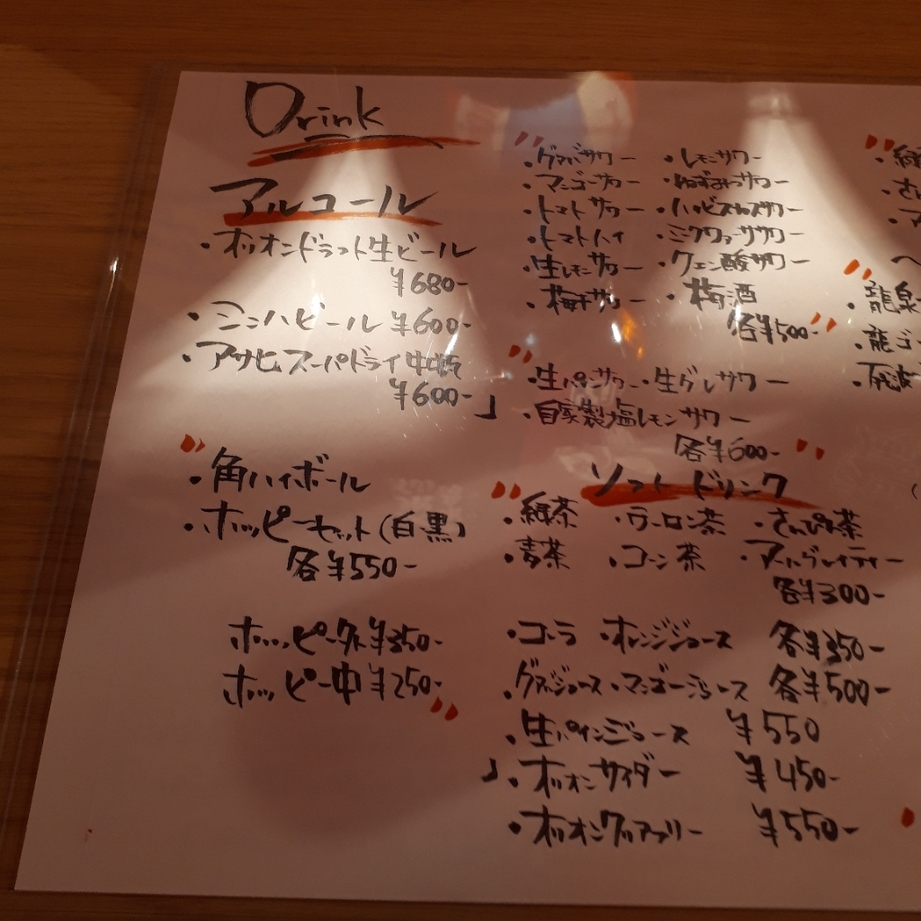 Drink
アルコール
・オリオンドラフト生ビール
¥680-
・ミニハビール ¥600-
・アサヒスーパードライ中瓶
¥600-
・角ハイボール
・ホッピーセット(白黒)
各¥550-
ホッピー外¥350-
ホッピー中¥250-
・グァバサワー ・レモンサワー
・マンゴーサワー
・トマトサワー ・ハイビスカスサワー
・トマトハイ ・シークヮーサーサワー
・生レモンサワー ・クエン酸サワー
・梅干サワー ・梅酒
各¥500-
・生パインサワー ・生グレサワー
・自家製塩レモンサワー
各¥600-
ソフトドリンク
・緑茶 ・ウーロン茶 ・さんぴん茶
・麦茶 ・コーン茶 ・アールグレイティー
各¥300-
・コーラ オレンジジュース 各¥350-
・グァバジュース ・マンゴージュース 各¥500-
・生パインジュース ¥550
・オリオンサイダー ¥450-
・オリオンクリアフリー ¥550-